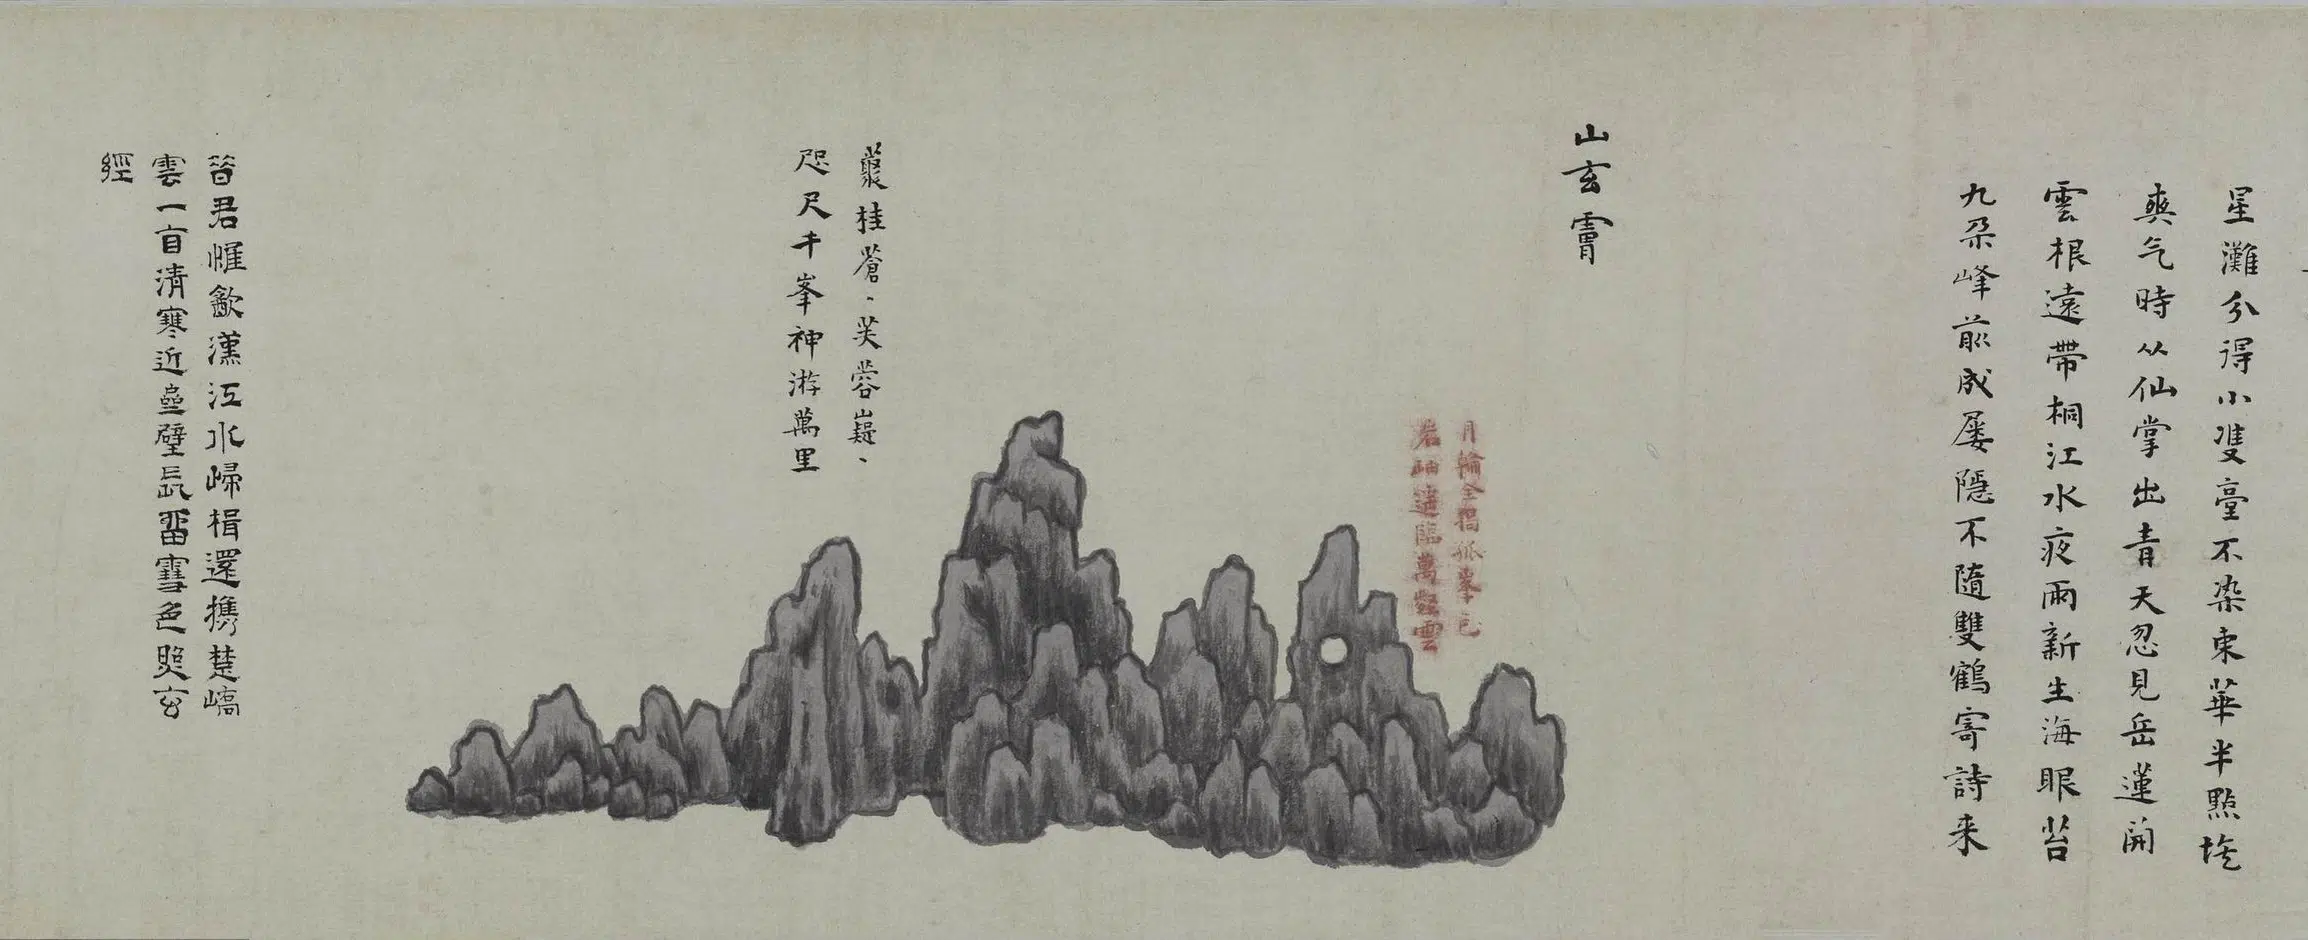 星灘分得小雙臺不染東華半點埃
爽气時从仙掌出青天忽見岳蓮開
雲根遠帶桐江水夜雨新生海眼苔
九朶峰前成屢隱不隨雙鶴寄詩来
山玄膚
月輪全揭孤峯色
岩岫遥臨萬壑雲
叢桂蒼、芙蓉嶷、
咫尺千峯神游萬里
昔君帷漢江水歸楫還携楚嶠
雲一清寒近壘壁長留雪色照玄
經